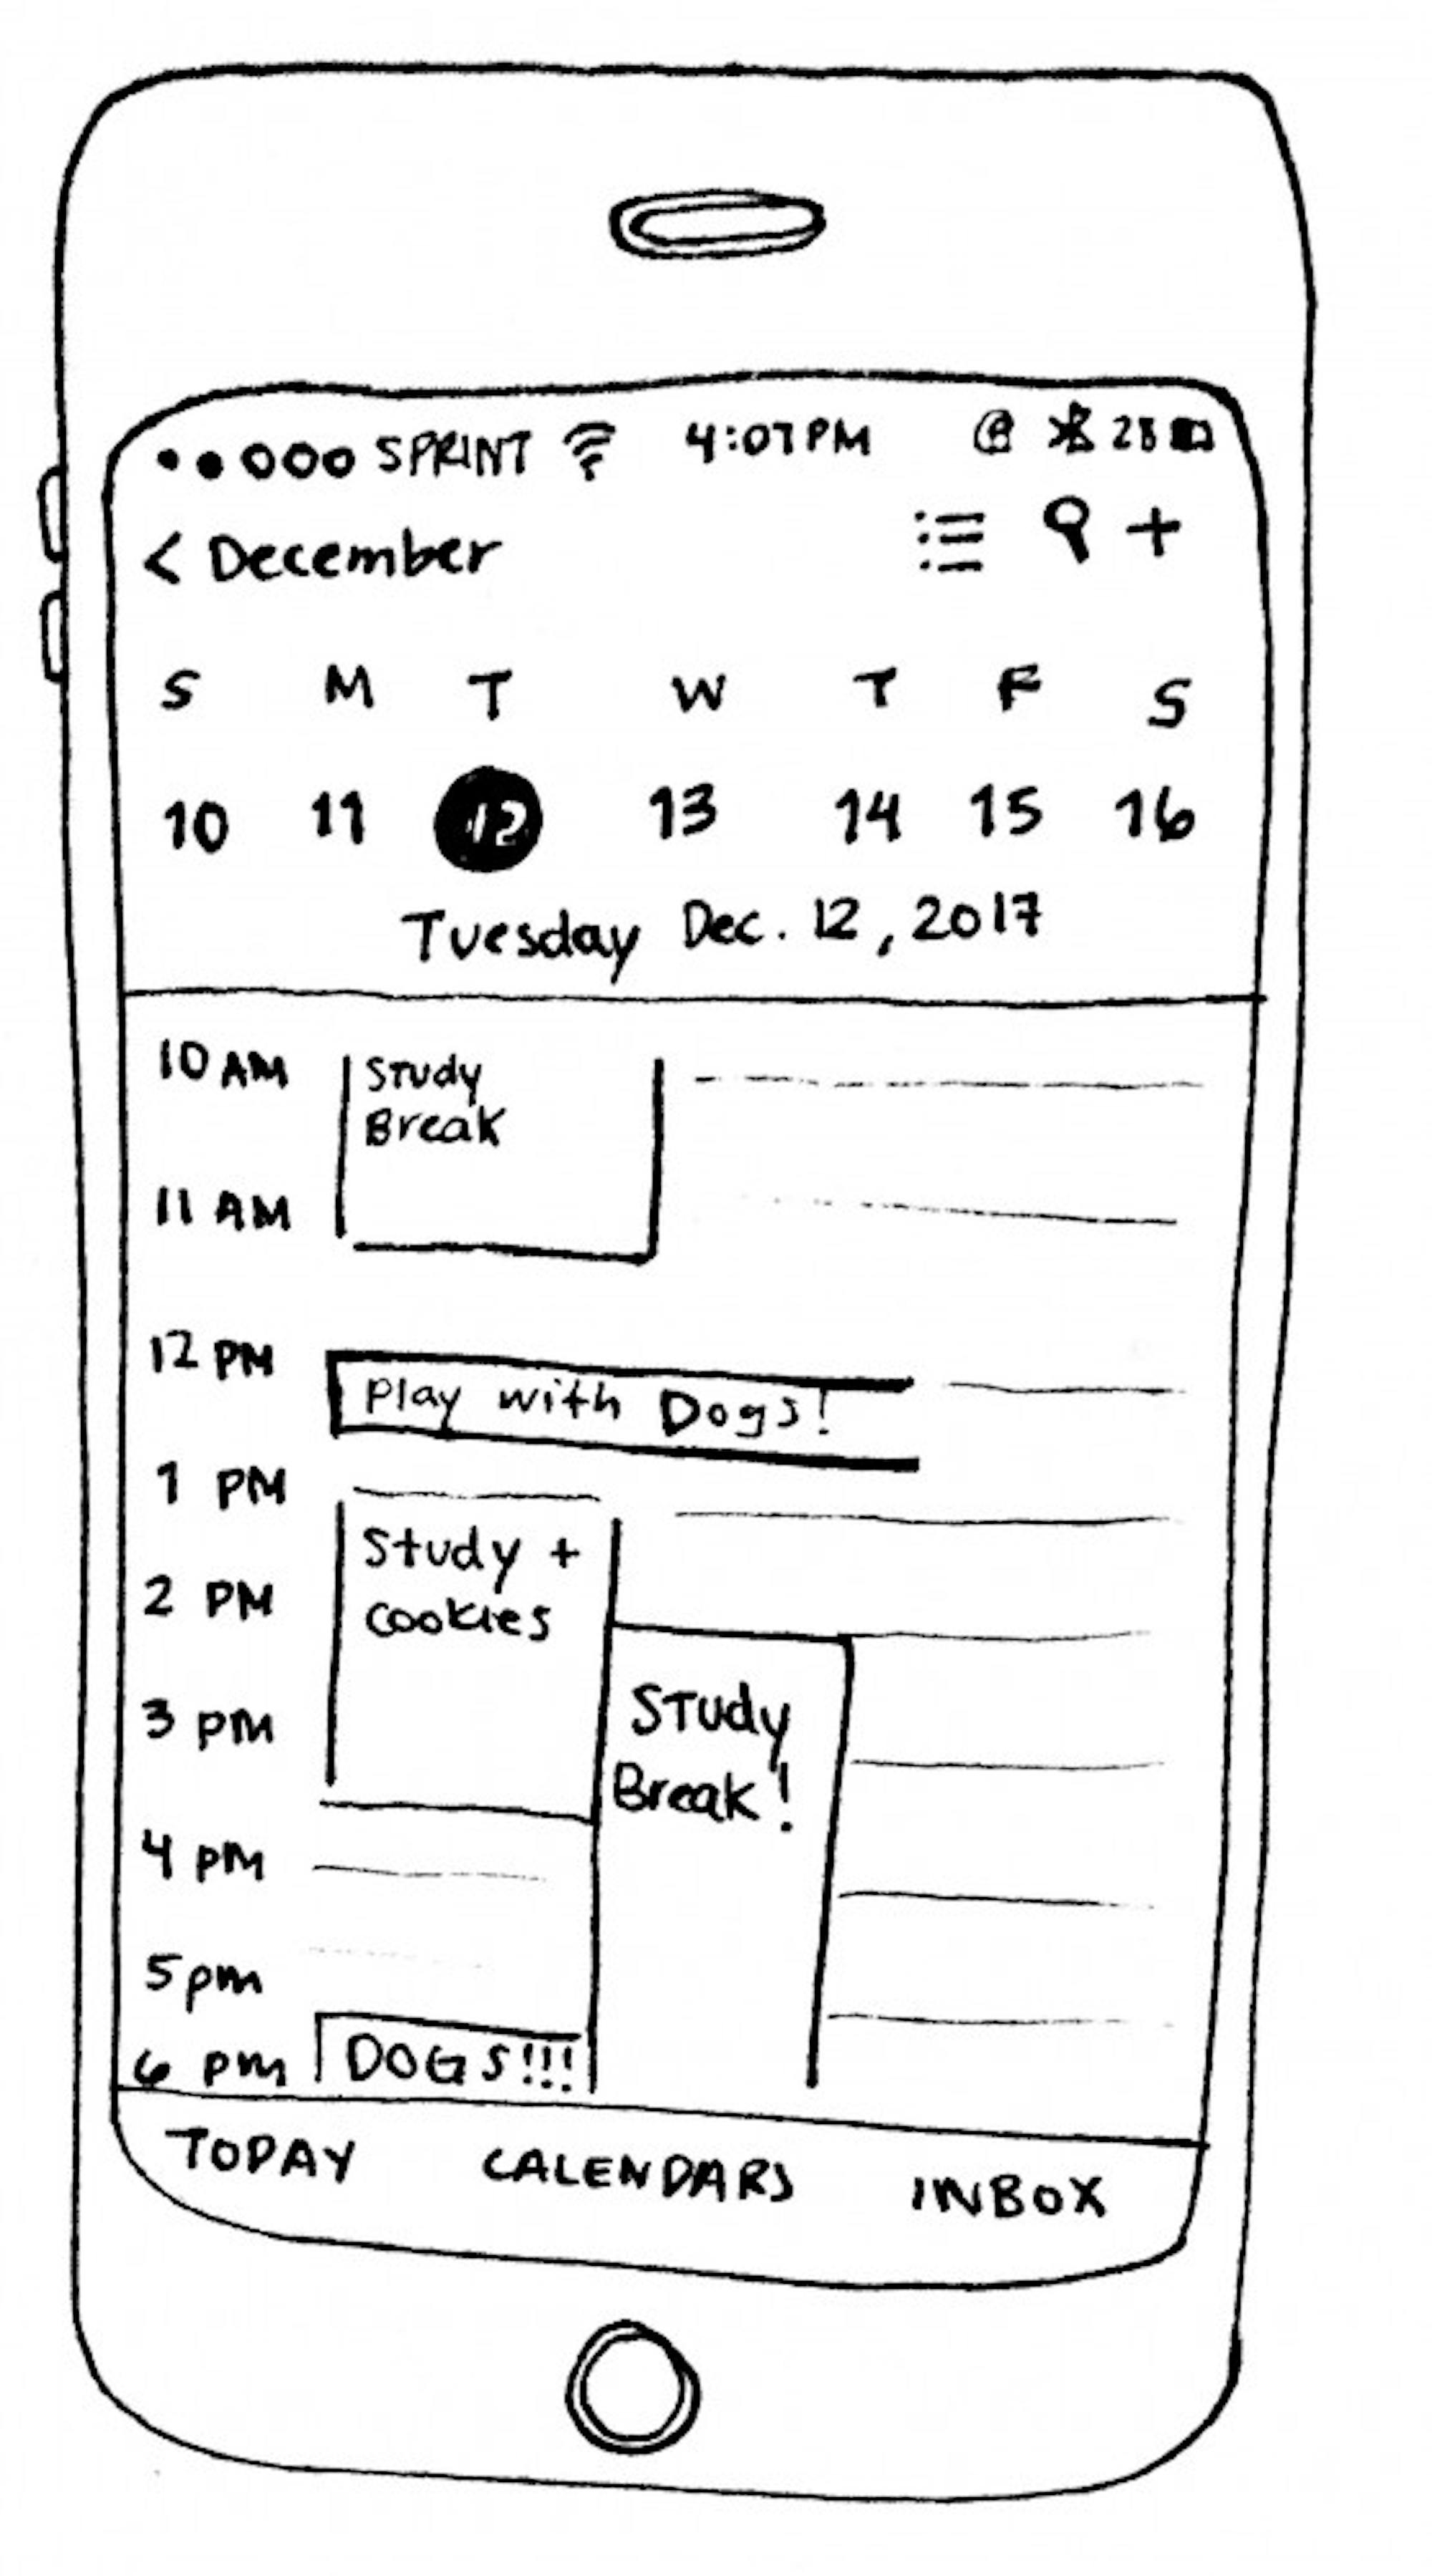 SPRINT 4:07PM 28
< December +
S M T W T F S
10 11 12 13 14 15 16
Tuesday Dec. 12, 2017
10 AM
Study
Break
11 AM
12 PM
Play with Dogs!
1 PM
Study +
cookies
2 PM
3 pm
Study
Break!
4 pm
5pm
6 pm
DOGS!!!
TODAY CALENDARS INBOX